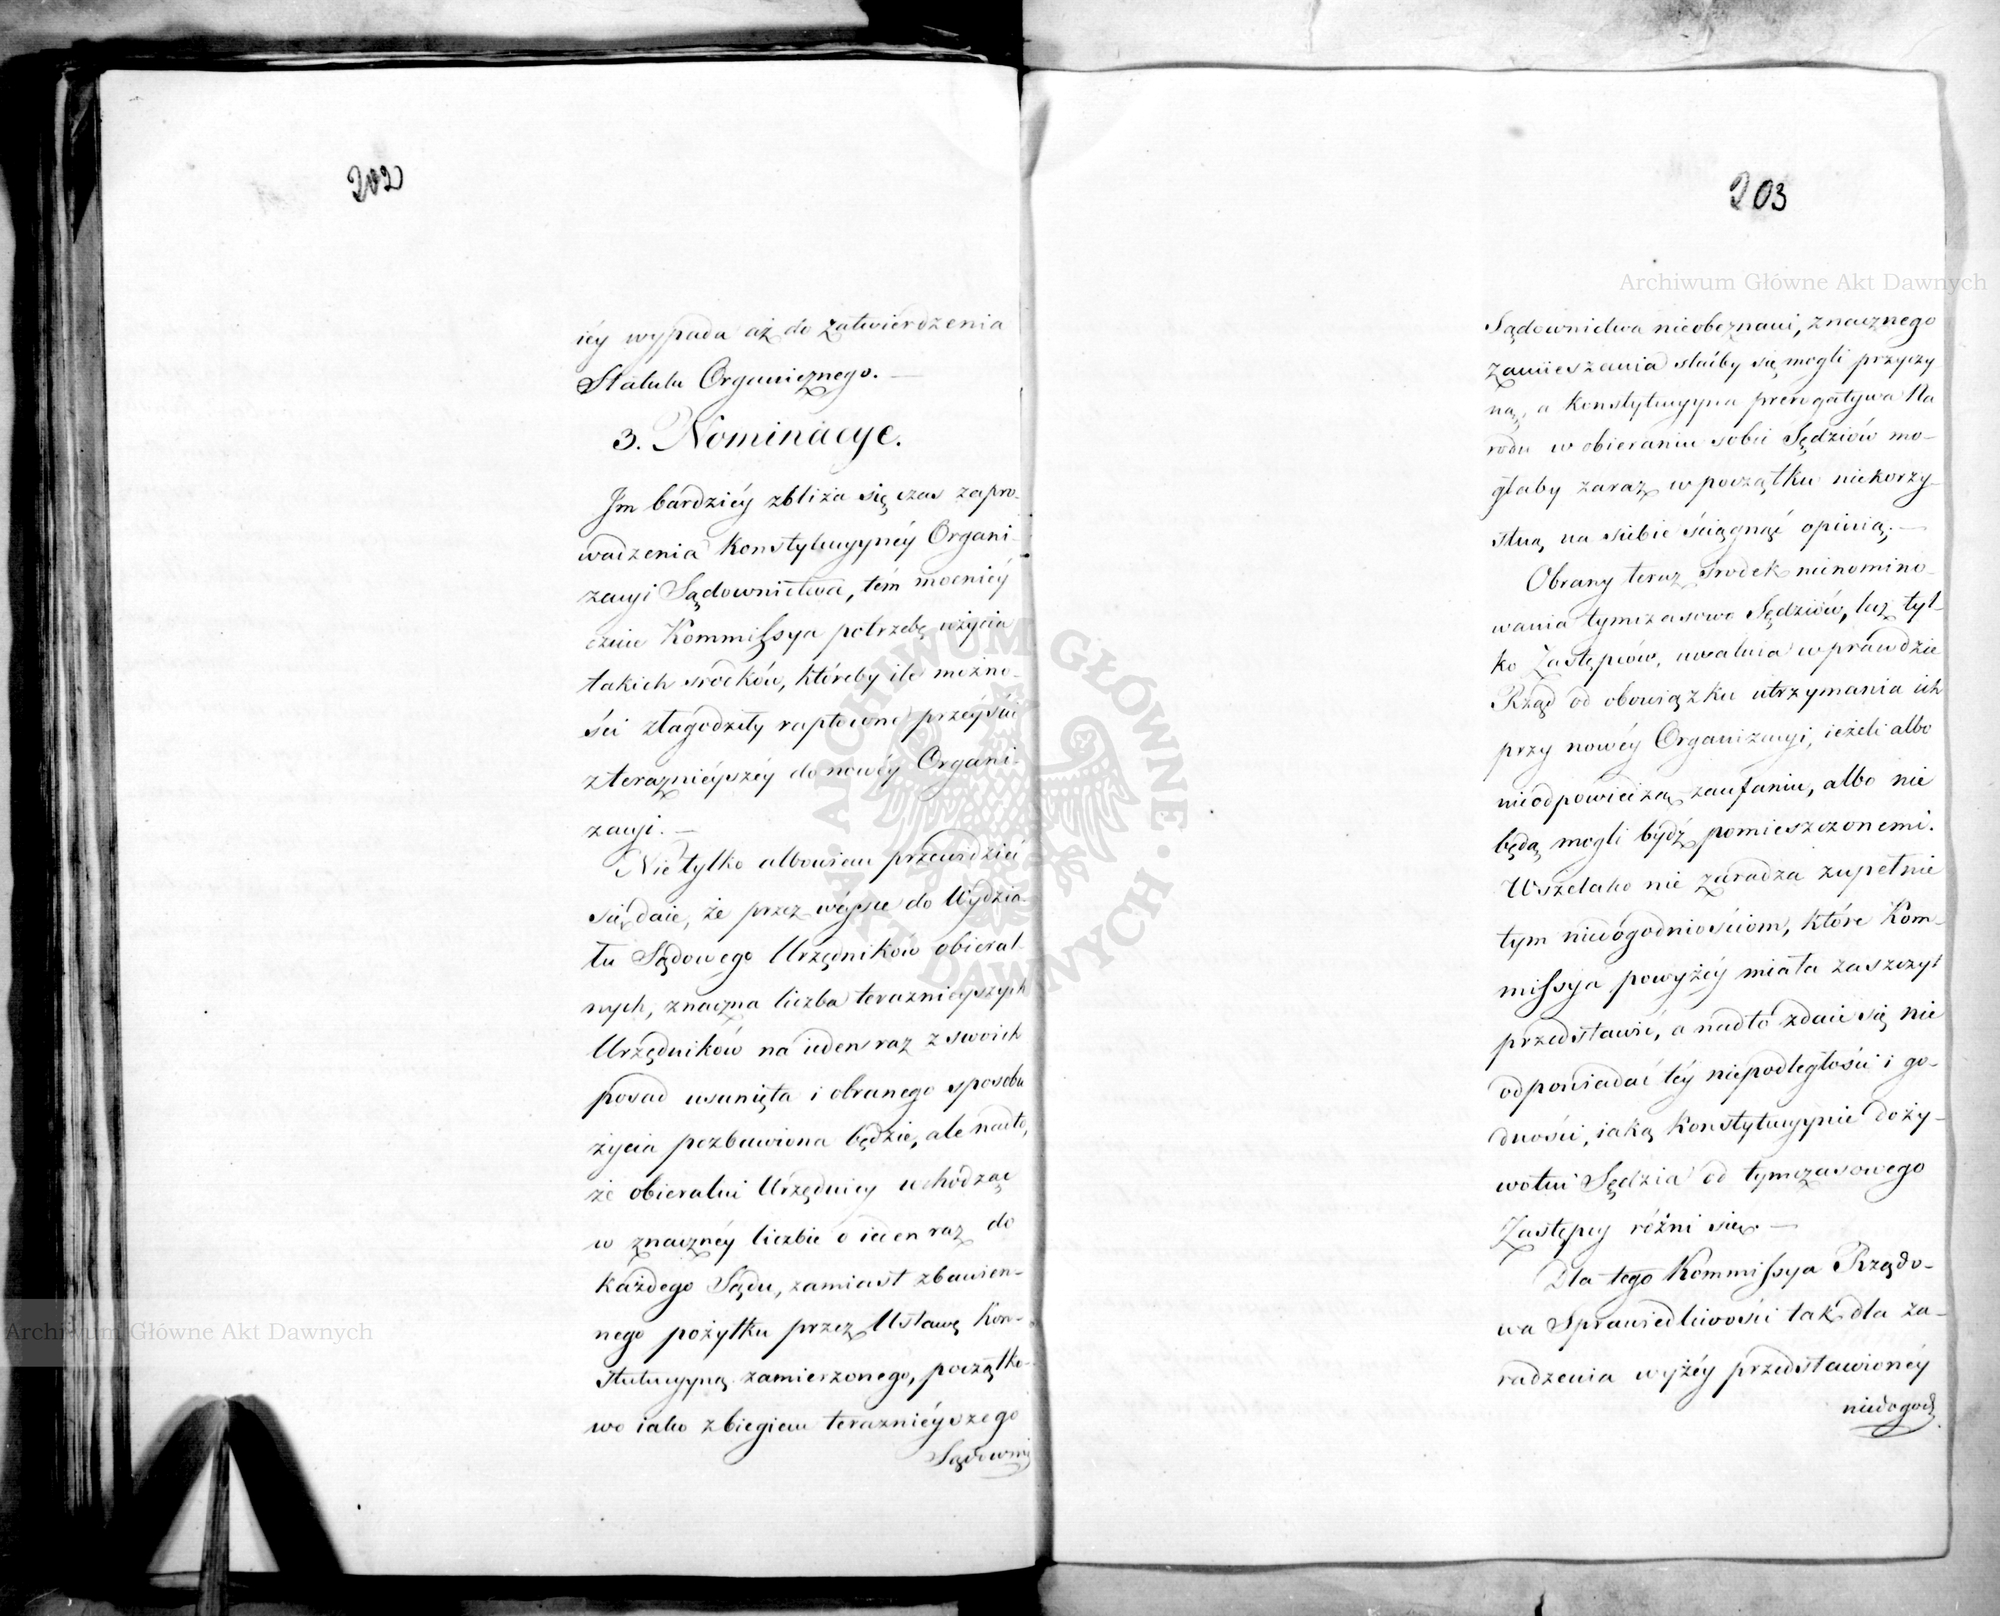 202
iéy wypada aż do zatwierdzenia
Statutu Organicznego. —
3. Nominacye.
Im bardziéy zbliża się czas zapro-
wadzenia Konstytucyynéy Organi-
zacyi Sądownictwa, tém mocniéy
czuie Kommissya potrzebę użycia
takich srodków, któreby ile możno-
ści złagodziły raptowne przeyście
z teraznieyszéy do nowéy Organi-
zacyi. —
Nie tylko albowiem przewidzieć
się daie, że przez weyście do Wydzia-
łu Sądowego Urzędników obieral-
nych, znaczna liczba teraznieyszych
Urzędników na ieden raz z swoich
posad usunięta i obranego sposobu
życia pozbawiona będzie, ale nadto,
że obieralni Urzędnicy wchodząc
w znacznéy liczbie o ieden raz do
każdego Sądu, zamiast zbawien-
nego pożytku przez Ustawę Kon-
stytucyyną zamierzonego, początko-
wo iako z biegiem teraznieyszego
Sądowni
203
Sądownictwa nieobeznani, znacznego
zamieszania służby się mogli przyczy
ną, a Konstytucyyna prerogatywa Na
rodu w obieraniu sobie Sędziów mo-
głaby zaraz w początku niekorzy-
stną na siebie ściągnąć opinią. —
Obrany teraz srodek nienomino-
wania tymczasowo Sędziów, lecz tyl-
ko Zastępców, uwalnia wprawdzie
Rząd od obowiązku utrzymania ich
przy nowéy Organizacyi, ieżeli albo
nieodpowiedzą zaufaniu, albo nie
będą mogli bydź pomieszczonemi.
Wszelako nie zaradza zupełnie
tym niedogodnościom, które Kom-
missya powyżéy miała zaszczyt
przedstawić, a nadto zdaie się nie
odpowiadać téy niepodległości i go-
dności, iaką Konstytucyynie doży-
wotni Sędzia od tymczasowego
Zastępcy różni się. —
Dla tego Kommissya Rządo-
wa Sprawiedliwości tak dla za-
radzenia wyżéy przedstawionéy
niedogod
Archiwum Główne Akt Dawnych
Archiwum Główne Akt Dawnych
ARCHIWUM GŁÓWNE AKT DAWNYCH